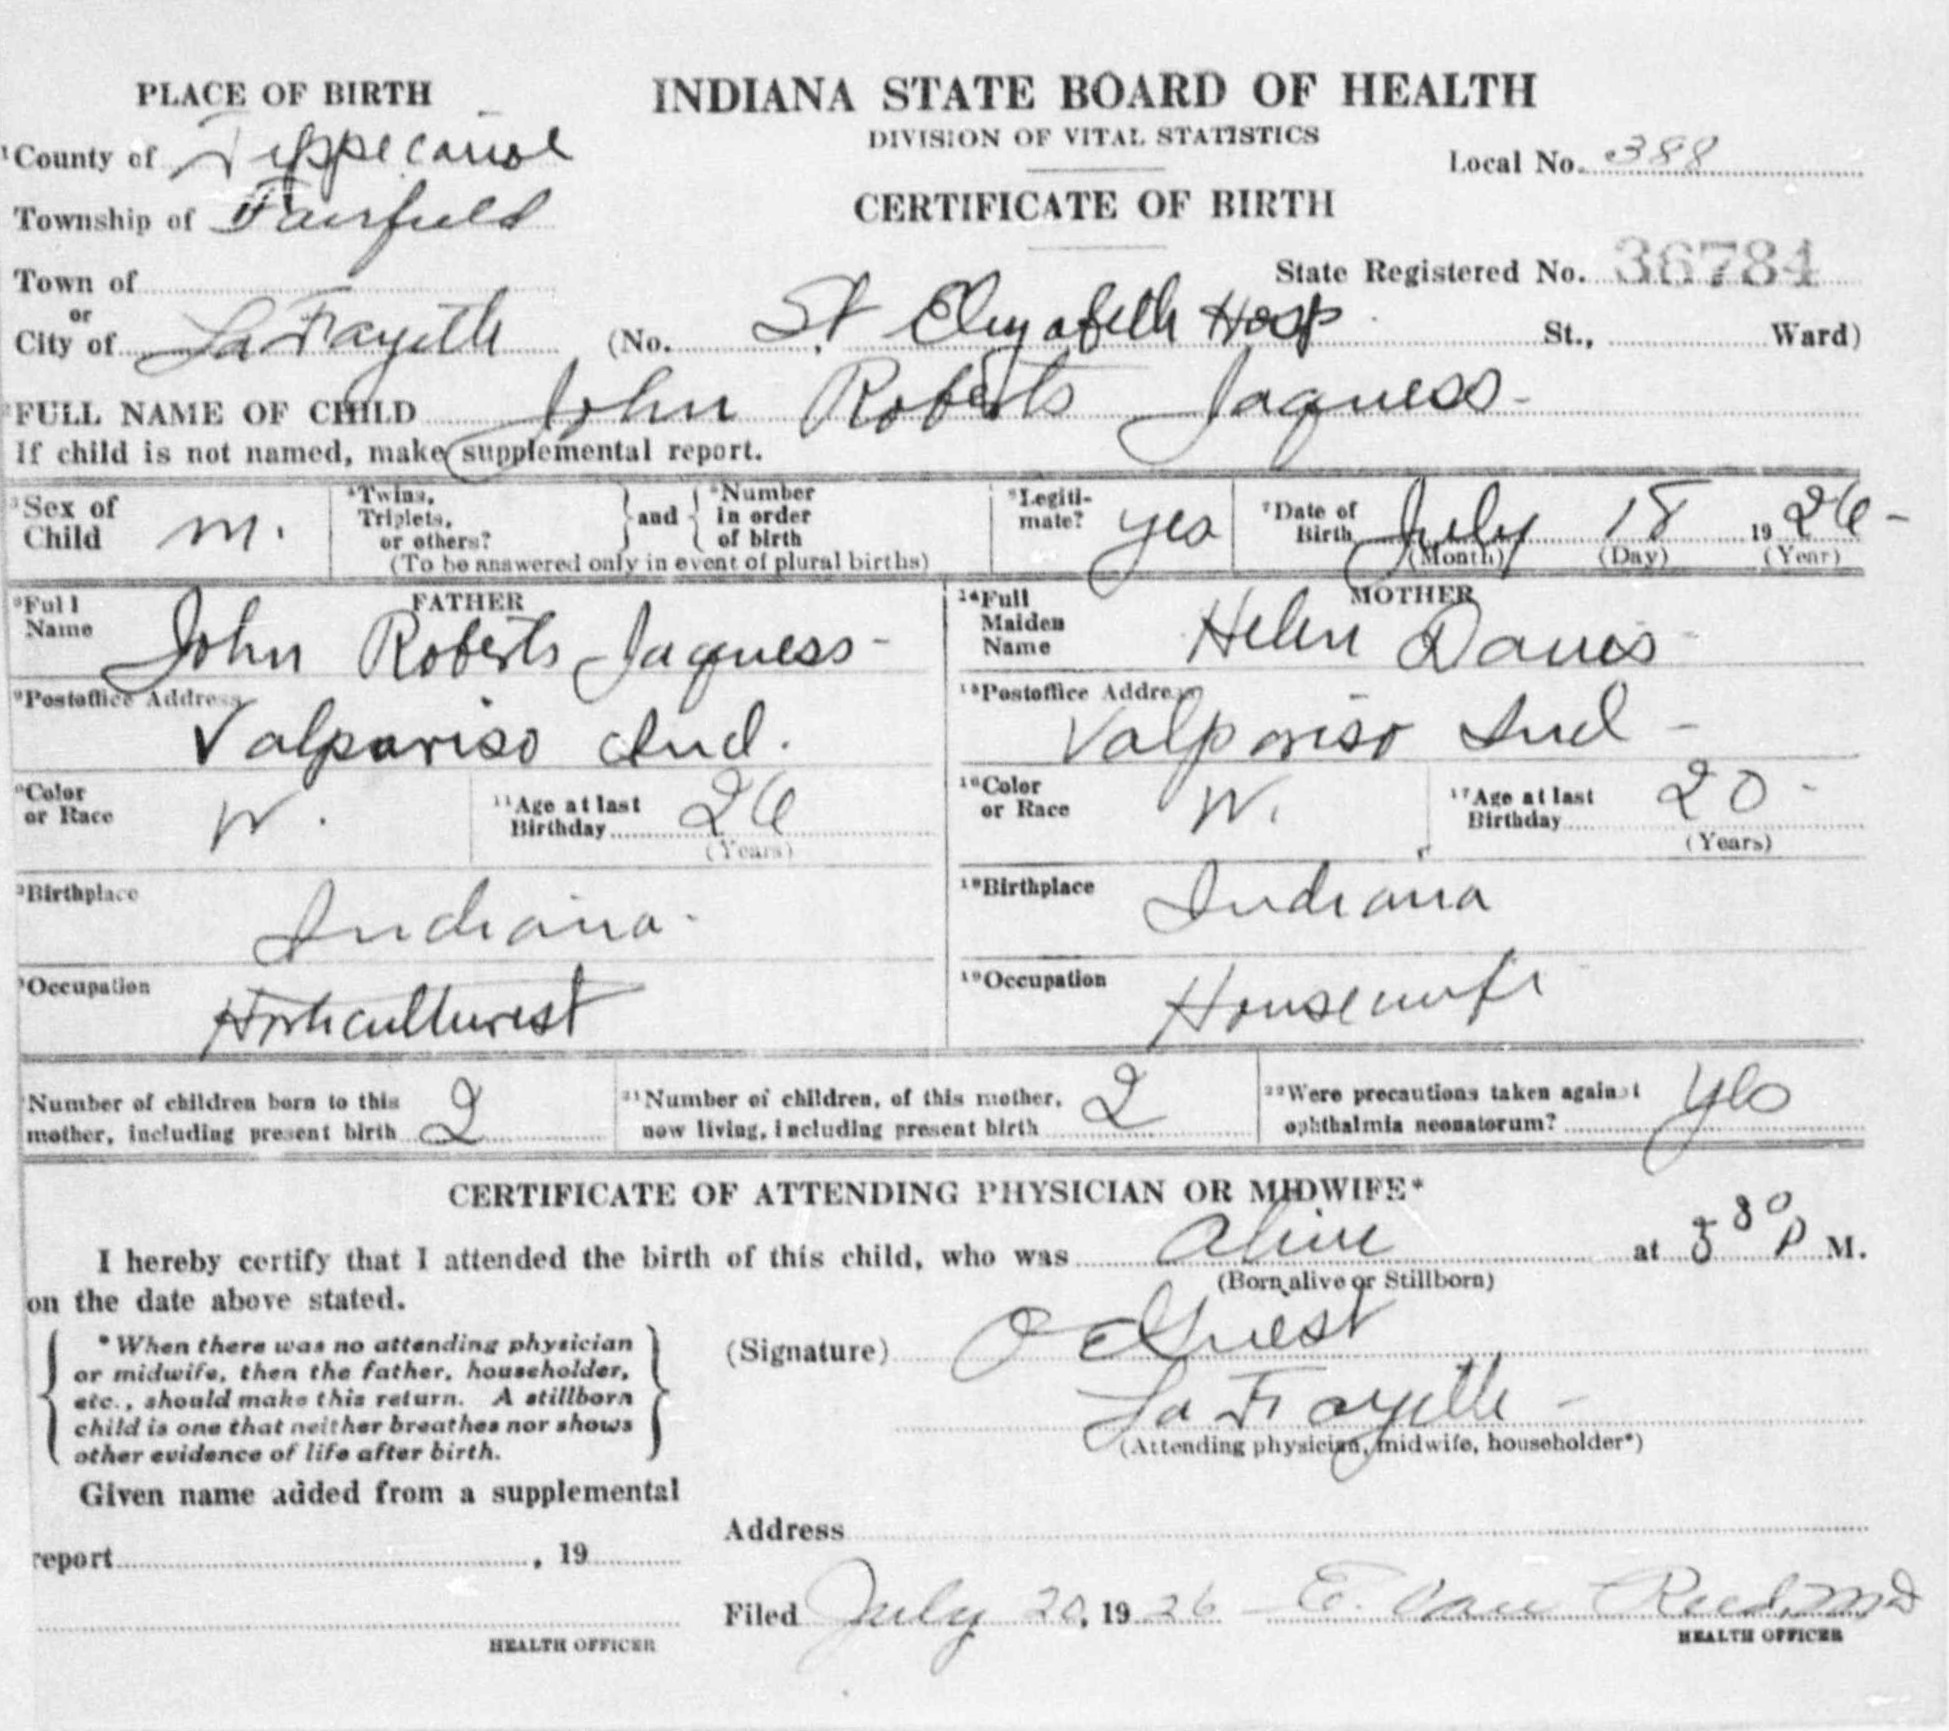 PLACE OF BIRTH
INDIANA STATE BOARD OF HEALTH
DIVISION OF VITAL STATISTICS
County of Tippecanoe
Local No. 388
CERTIFICATE OF BIRTH
Township of Fairfield
State Registered No. 36784
Town of
or
City of LaFayette (No. St Elizabeth Hosp. St., Ward)
FULL NAME OF CHILD John Roberts Jaquess
If child is not named, make supplemental report.
Sex of Child m.
Twins, Triplets, or others? and Number in order of birth
(To be answered only in event of plural births)
Legitimate? yes
Date of Birth July 18 1926
(Month) (Day) (Year)
FATHER
Full Name John Roberts Jaquess
Postoffice Address
Valpariso Ind.
Color or Race W.
Age at last Birthday 26
(Years)
Birthplace Indiana
Occupation Horticulturist
MOTHER
14 Full Maiden Name Helen Davis
15 Postoffice Address
Valpariso Ind
16 Color or Race W.
17 Age at last Birthday 20
(Years)
18 Birthplace Indiana
19 Occupation Housewife
Number of children born to this mother, including present birth 2
21 Number of children, of this mother, now living, including present birth 2
22 Were precautions taken against ophthalmia neonatorum? yes
CERTIFICATE OF ATTENDING PHYSICIAN OR MIDWIFE*
I hereby certify that I attended the birth of this child, who was alive at P M.
(Born alive or Stillborn)
on the date above stated.
* When there was no attending physician
or midwife, then the father, householder,
etc., should make this return. A stillborn
child is one that neither breathes nor shows
other evidence of life after birth.
(Signature)
La Fayette
(Attending physician, midwife, householder*)
Given name added from a supplemental
report , 19
HEALTH OFFICER
Address
Filed July 20, 1926 E. Van Reed, MD
HEALTH OFFICER